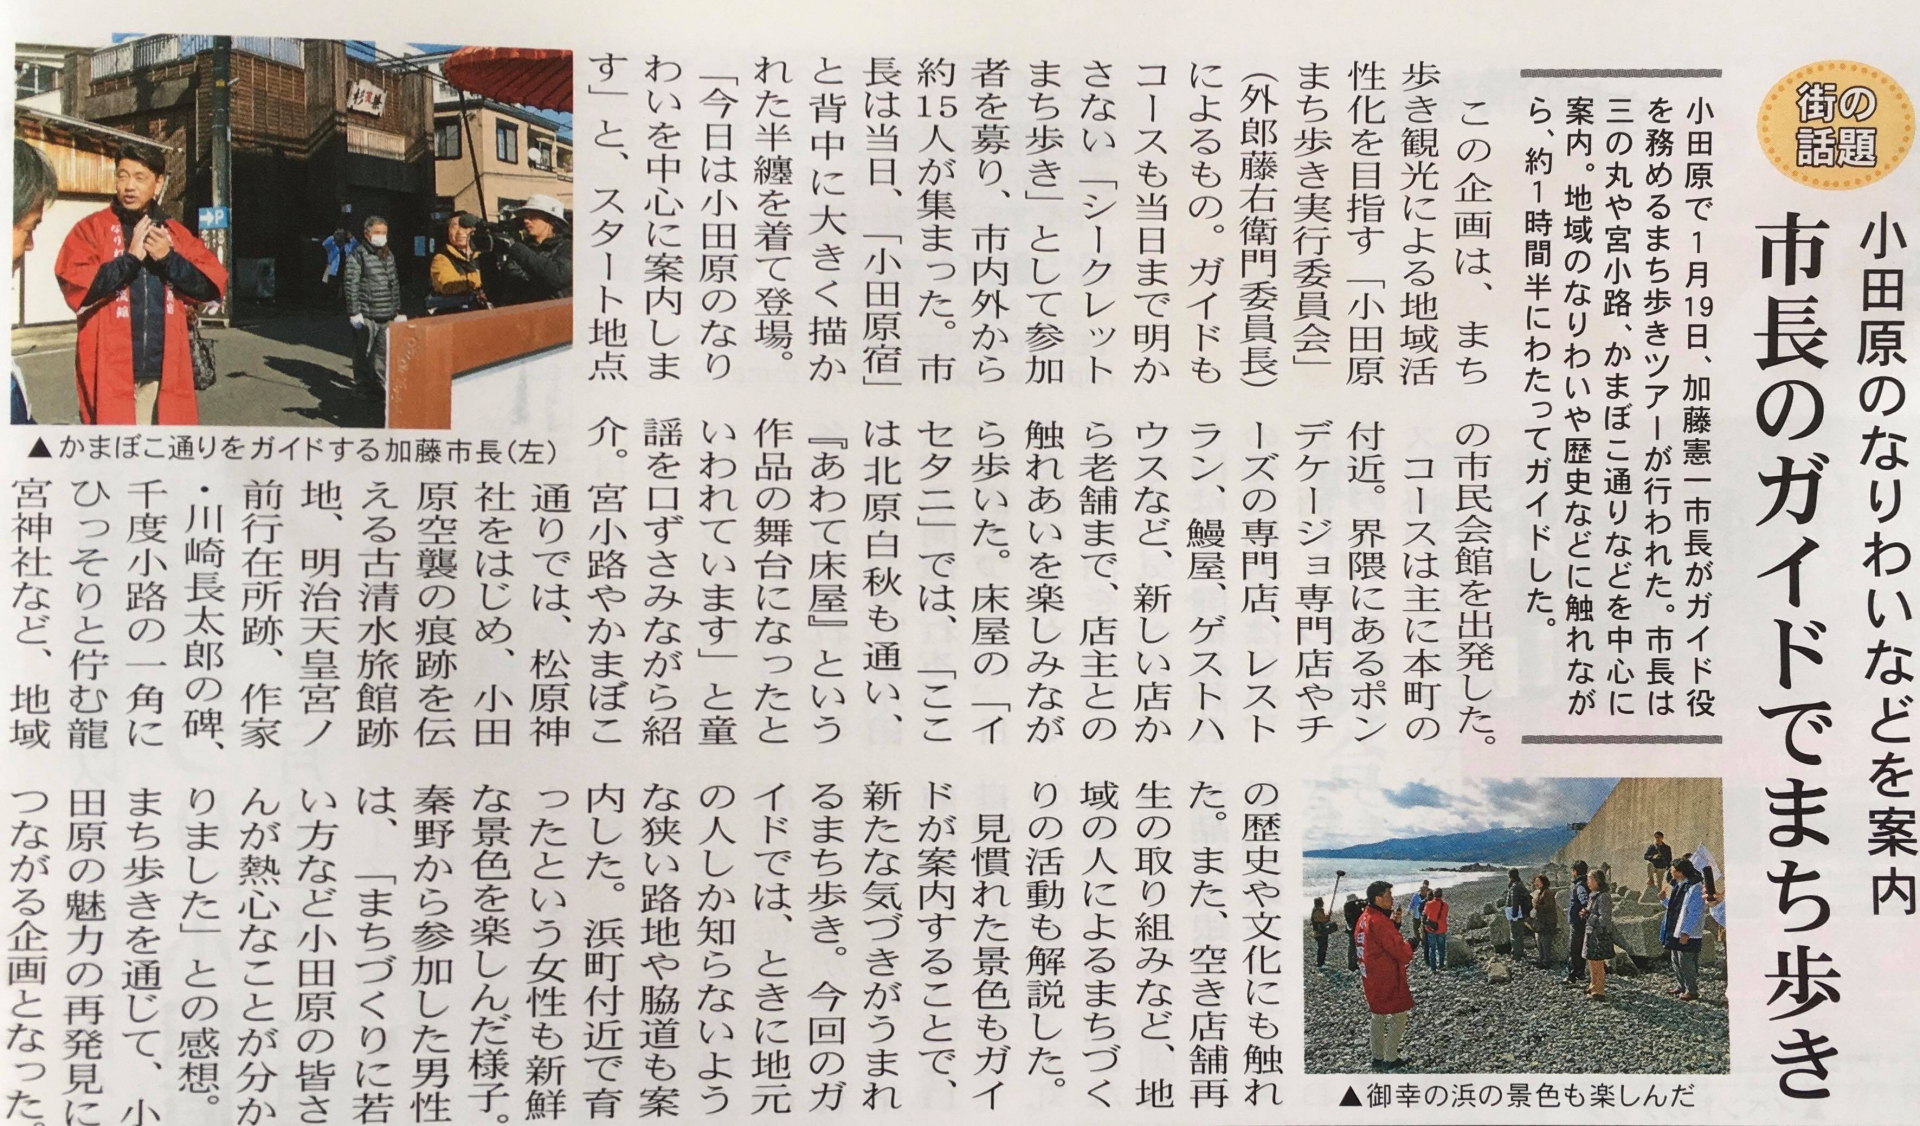 街の
話題
小田原のなりわいなどを案内
市長のガイドでまち歩き
小田原で1月19日、加藤憲一市長がガイド役
を務めるまち歩きツアーが行われた。市長は
三の丸や宮小路、かまぼこ通りなどを中心に
案内。地域のなりわいや歴史などに触れなが
ら、約1時間半にわたってガイドした。
この企画は、まち
歩き観光による地域活
性化を目指す「小田原
まち歩き実行委員会」
(外郎藤右衛門委員長)
によるもの。ガイドも
コースも当日まで明か
さない「シークレット
まち歩き」として参加
者を募り、市内外から
約15人が集まった。市
長は当日、「小田原宿」
と背中に大きく描か
れた半纏を着て登場。
「今日は小田原のなり
わいを中心に案内しま
す」と、スタート地点
の市民会館を出発した。
コースは主に本町の
付近。界隈にあるポン
デケージョ専門店やチ
ーズの専門店、レスト
ラン、鰻屋、ゲストハ
ウスなど、新しい店か
ら老舗まで、店主との
触れあいを楽しみなが
ら歩いた。床屋の「イ
セタニ」では、「ここ
は北原白秋も通い、
『あわて床屋』という
作品の舞台になったと
いわれています」と童
謡を口ずさみながら紹
介。宮小路やかまぼこ
通りでは、松原神
社をはじめ、小田
原空襲の痕跡を伝
える古清水旅館跡
地、明治天皇宮ノ
前行在所跡、作家
・川崎長太郎の碑、
千度小路の一角に
ひっそりと佇む龍
宮神社など、地域
の歴史や文化にも触れ
た。また、空き店舗再
生の取り組みなど、地
域の人によるまちづく
りの活動も解説した。
見慣れた景色もガイ
ドが案内することで、
新たな気づきがうまれ
るまち歩き。今回のガ
イドでは、ときに地元
の人しか知らないよう
な狭い路地や脇道も案
内した。浜町付近で育
ったという女性も新鮮
な景色を楽しんだ様子。
秦野から参加した男性
は、「まちづくりに若
い方など小田原の皆さ
んが熱心なことが分か
りました」との感想。
まち歩きを通じて、小
田原の魅力の再発見に
つながる企画となった。
▲かまぼこ通りをガイドする加藤市長(左)
▲御幸の浜の景色も楽しんだ